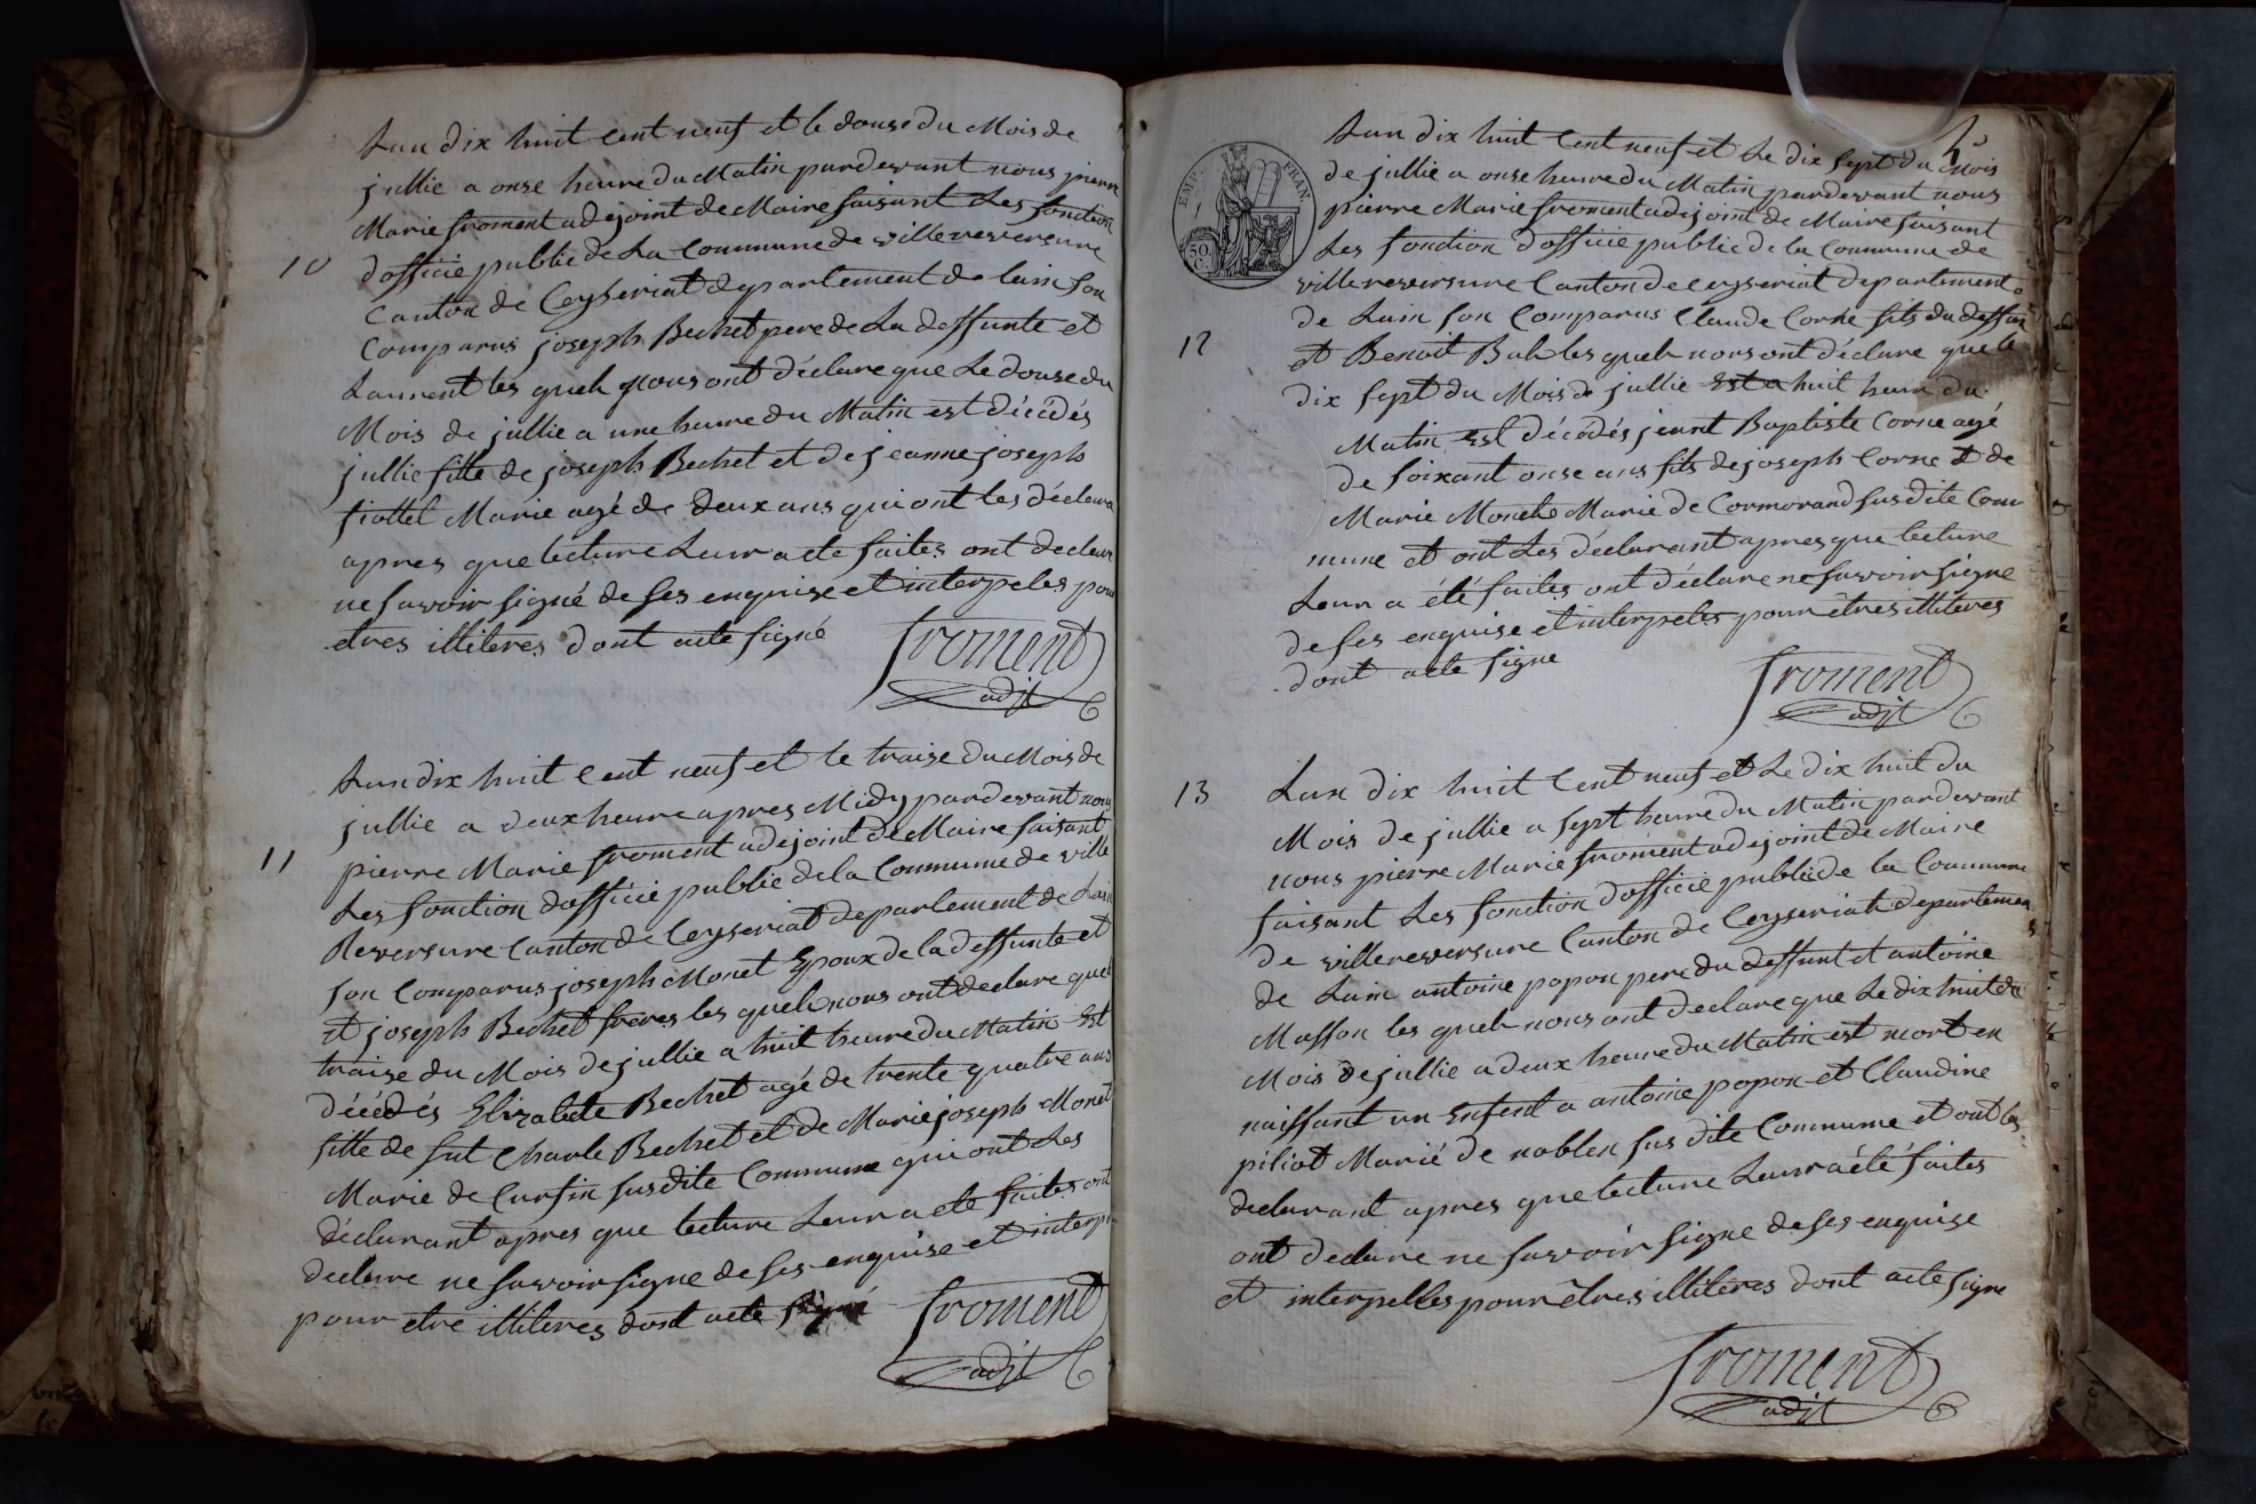 Lan dix huit cent neuf et le douse du Mois de
jullie a onse heure du Matin pardevant nous pierre
Marie froment adejoint de Maire faisant Les fonction
10
dofficie public de La Commune de villereversure
Canton de Ceyseriat departement de lain son
Comparus joseph Bechet pere de La deffunte et
Laurent les quels nous ont déclare que Le douse du
Mois de jullie a une heure du Matin est décédés
jullie fille de joseph Bechet et de jeanne joseph
Marie agé de deux ans qui ont Les déclara
apres que lecture Leur a ete faites ont declare
ne savoir signé de ses enquise et interpeles pour
etres illiteres dont acte signé
froment
adjt
Lan dix huit cent neuf et le traise du Mois de
jullie a deux heure apres Midy pardevant nous
11
pierre Marie froment adejoint de Maire faisant
Les fonction dofficie public de la Commune de ville
Reversure Canton de Ceyseriat departement de Lain
son Comparus joseph Monet Epoux de la deffunte et
et joseph Bechet freres les quels nous ont declare que le
traise du Mois de jullie a huit heure du Matin Est
décédés Elizabete Bechet agé de trente quatre ans
fille de fut Charle Bechet et de Marie joseph Monet
Marie de Curfin susdite Commune qui ont Les
déclarant apres que lecture Leur a ete faites ont
declare ne savoir signe de ses enquise et interp
pour etre illiteres dont acte signé
froment
adjt
EMP. FRAN.
50 C.
Lan dix huit Cent neuf et Le dix sept du Mois
de jullie a onse heure du Matin pardevant nous
pierre Marie froment adejoint de Maire faisant
Les fonction dofficie public de la Commune de
villereversure Canton de ceyseriat departement
de Lain son Comparus Claude Corne fils du deffun
12
et Benoit Bal les quels nous ont déclare que le
dix sept du Mois de jullie Est a huit heure du
Matin est décédés jeant Baptiste Corne agé
de soixant onse ans fils de joseph Corne et de
Marie Marie de Cormorand susdite Com
mune et ont Les déclarant apres que lecture
Leur a été faites ont déclare ne savoir signe
de ses enquise et interpeles pour êtres illiteres
dont acte signe
froment
adjt
13
Lan dix huit Cent neuf et Le dix huit du
Mois de jullie a sept heure du Matin pardevant
nous pierre Marie froment adejoint de Maire
faisant Les fonction dofficie public de la Commune
de villereversure Canton de Ceyseriat departemen
de Lain antoine popon pere du deffunt et antoine
Masson les quels nous ont declare que Le dix huit du
Mois de jullie a deux heure du Matin est mort en
naissant un Enfent a antoine popon et Claudine
piliat Marié de noblen sus dite Commune et ont les
declarant apres que lecture Leur a été faites
ont declare ne savoir signe de ses enquise
et interpelles pour êtres illiteres dont acte signe
froment
adjt